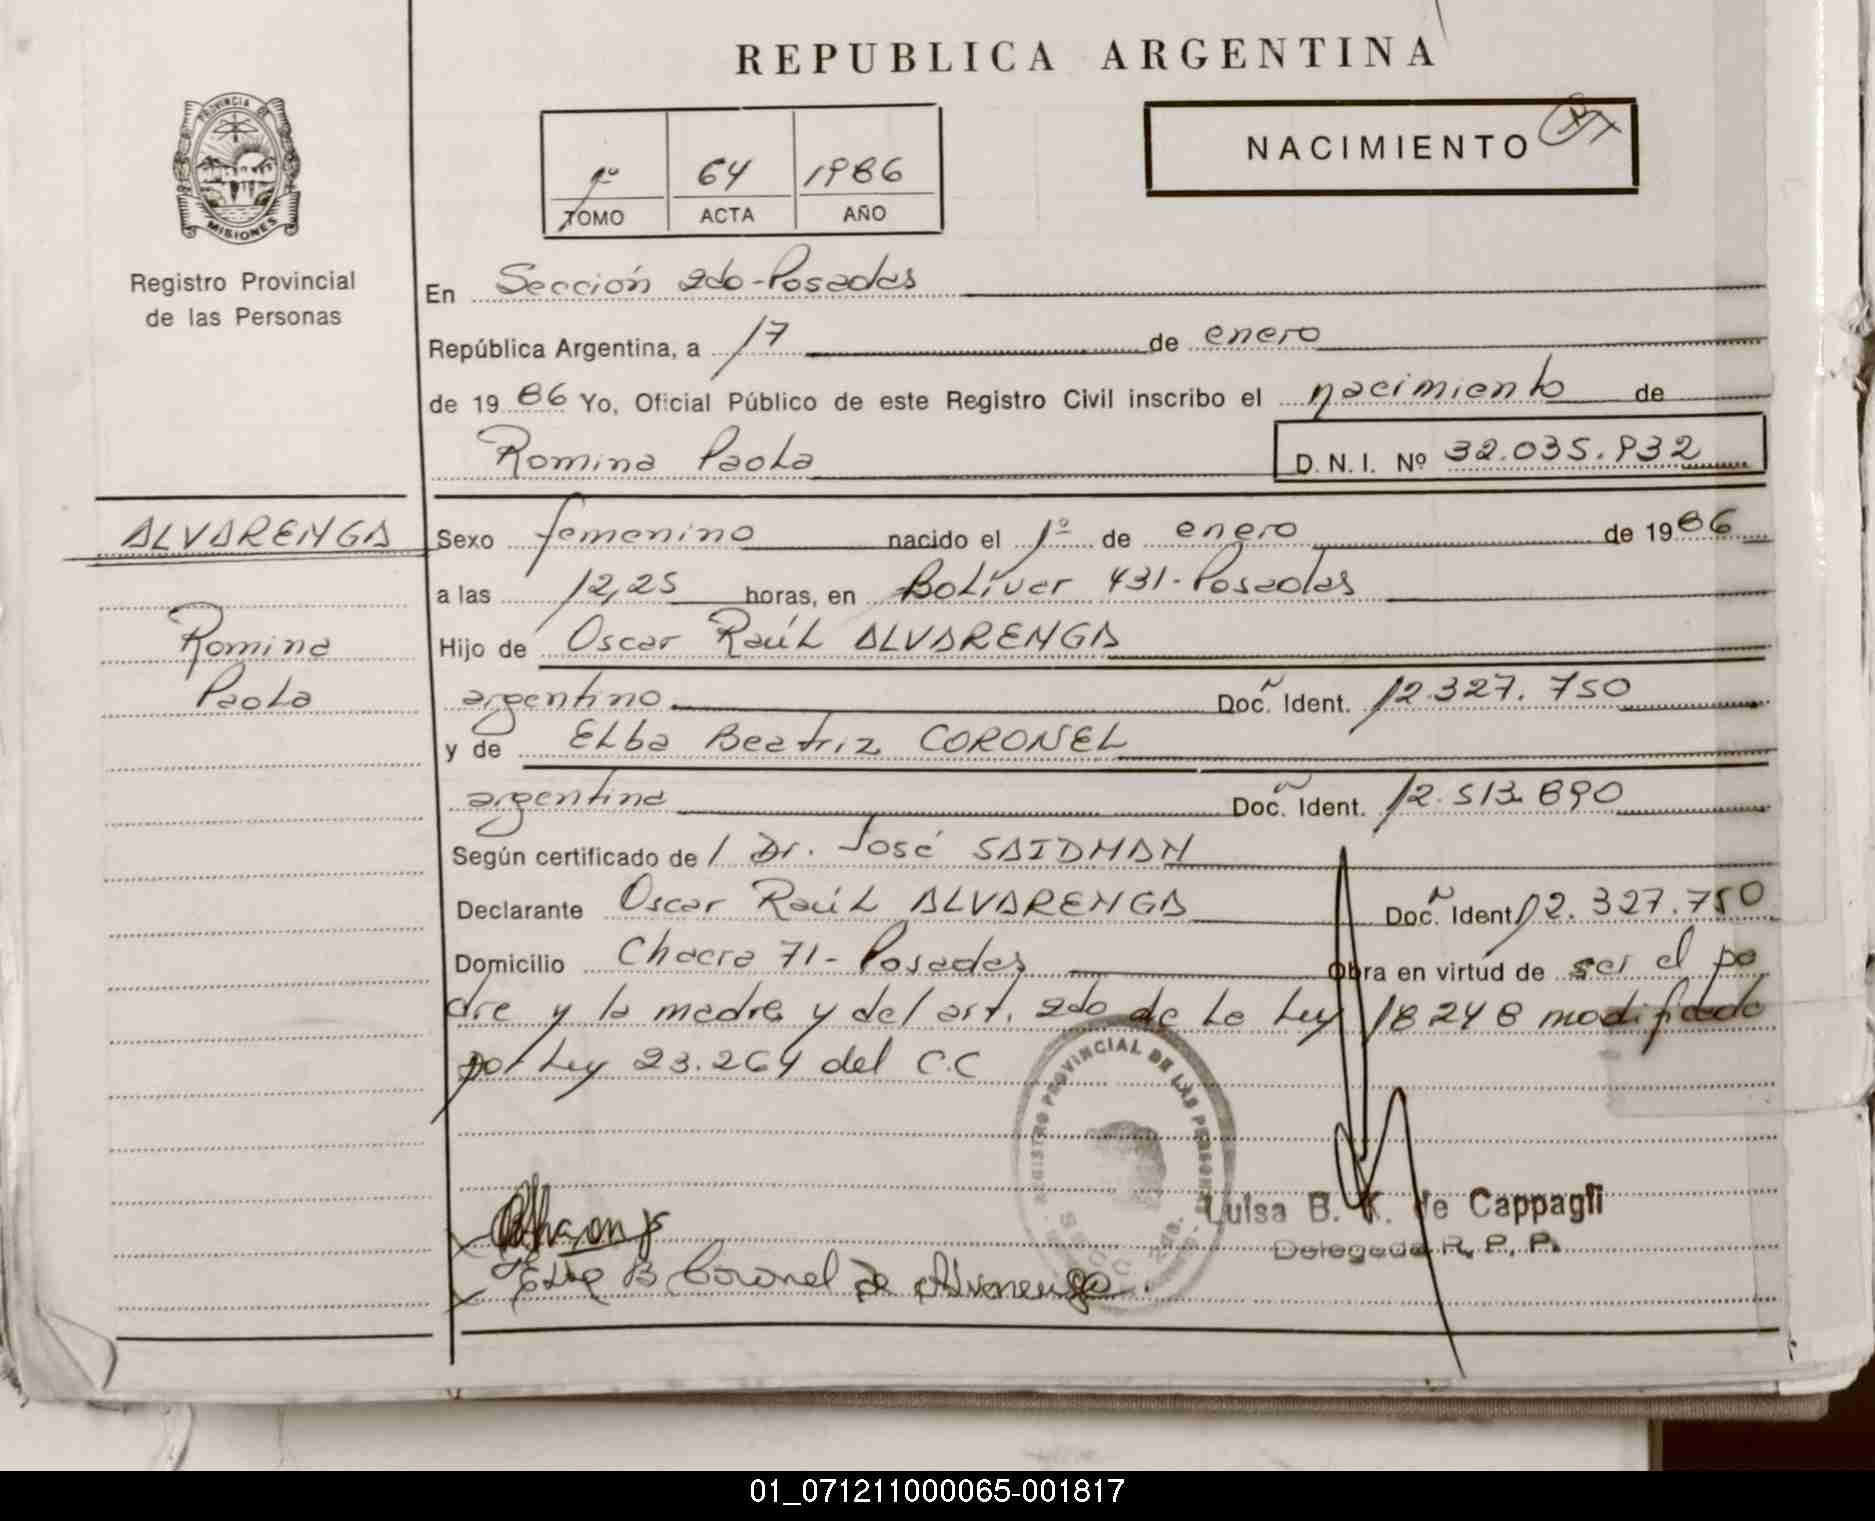 REPUBLICA ARGENTINA
PROVINCIA DE
MISIONES
Registro Provincial
de las Personas
1º 64 1986
TOMO ACTA AÑO
NACIMIENTO
En Sección 2do-Posadas
República Argentina, a 17 de enero
de 19 86 Yo, Oficial Público de este Registro Civil inscribo el nacimiento de
Romina Paola
D. N. I. Nº 32.035.932
ALVARENGA
Romina
Paola
Sexo femenino nacido el 1º de enero de 19 86
a las 12,25 horas, en Bolívar 431-Posadas
Hijo de Oscar Raúl ALVARENGA
argentino Doc. Ident. 12.327.750
y de Elba Beatriz CORONEL
argentina Doc. Ident. 12.513.890
Según certificado de / Dr. José SAIDMAN
Declarante Oscar Raúl ALVARENGA Doc. Ident 12.327.750
Domicilio Chacra 71- Posadas Obra en virtud de ser el pa
dre y la madre y del art. 2do de la Ley 18248 modificado
por Ley 23.264 del C.C
REGISTRO PROVINCIAL DE LAS PERSONAS
Luisa B. K. de Cappagli
Delegada R. P. P.
Elba B Coronel de Alvarenga.
01_071211000065-001817